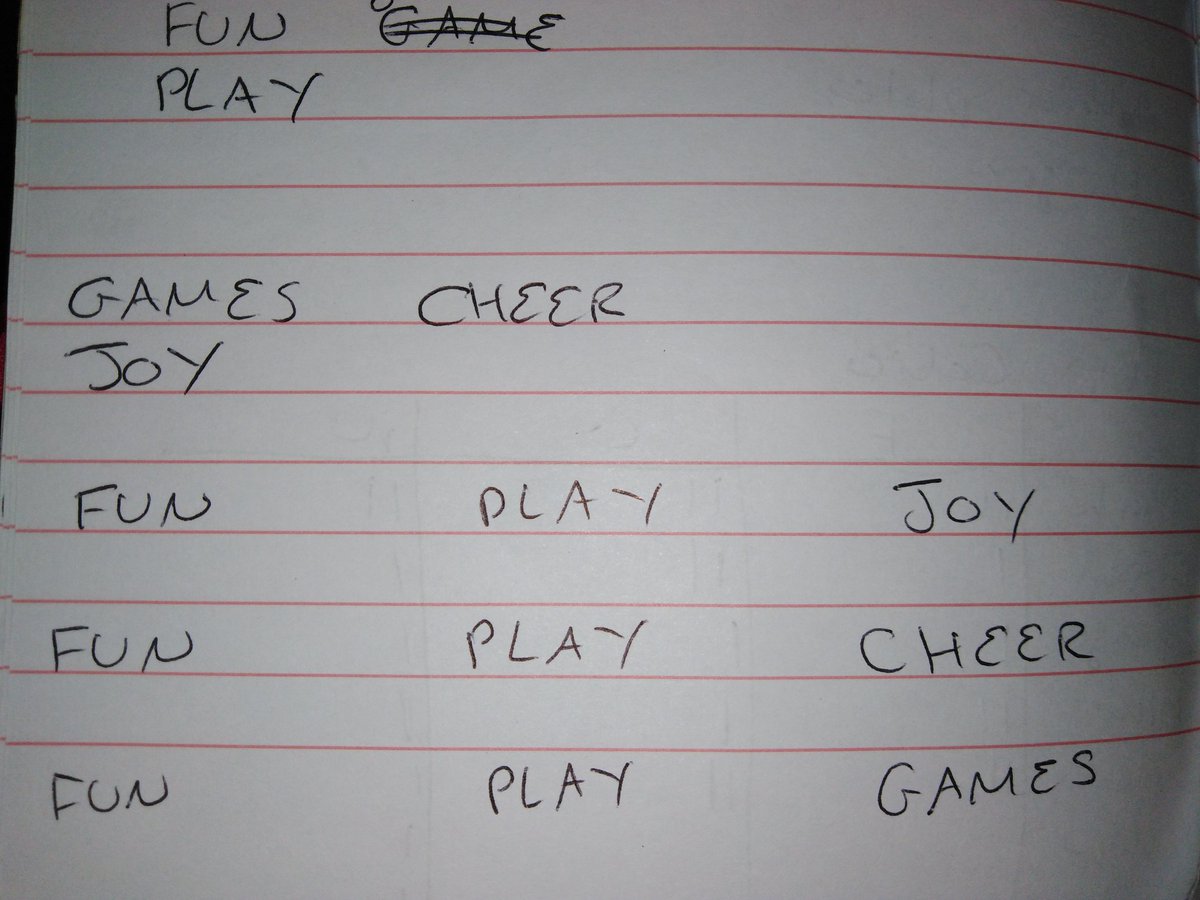 FUN GAME
PLAY
GAMES CHEER
JOY
FUN PLAY JOY
FUN PLAY CHEER
FUN PLAY GAMES